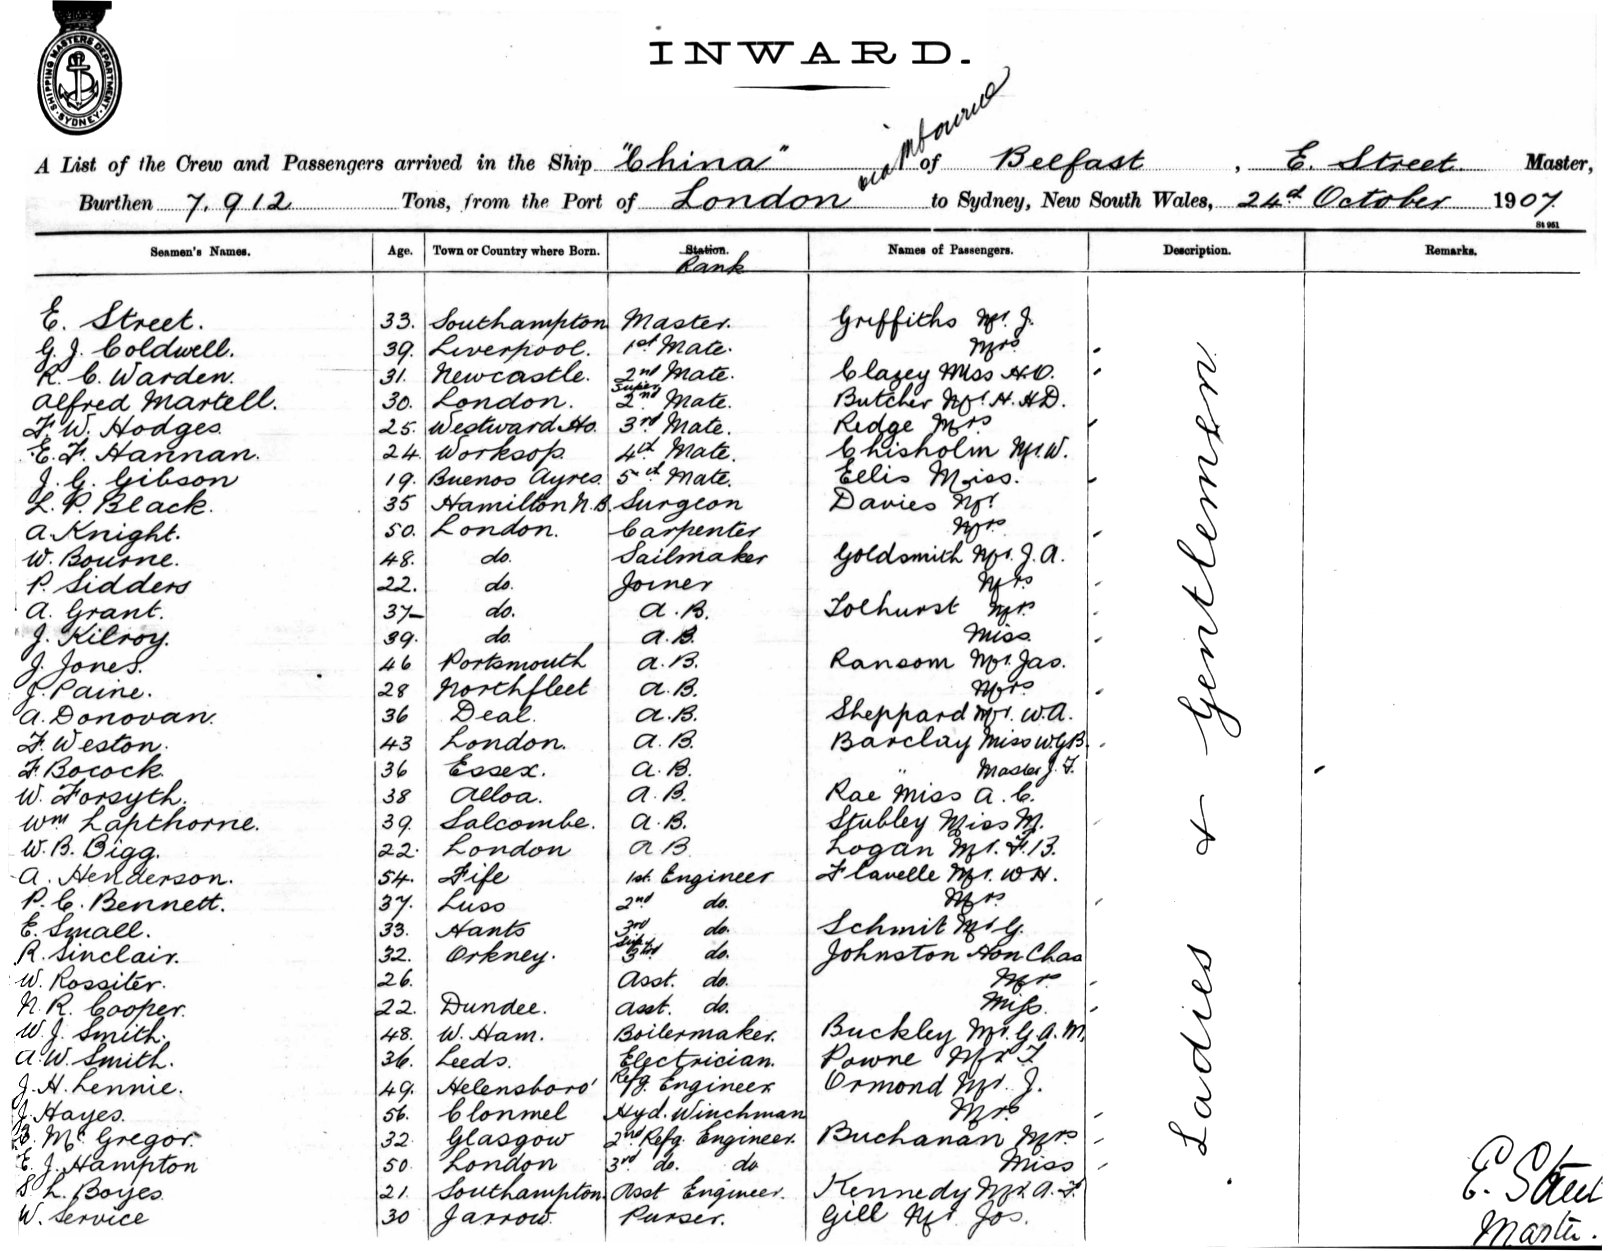 SHIPPING MASTERS DEPARTMENT. SYDNEY.
INWARD.
via Mbourne
A List of the Crew and Passengers arrived in the Ship "China" of Belfast, E. Street Master,
Burthen 7,912 Tons, from the Port of London to Sydney, New South Wales, 24th October 1907
St 951
Seamen's Names. Age. Town or Country where Born. Station. Names of Passengers. Description. Remarks.
Rank
E. Street. 33. Southampton Master. Griffiths Mr. J.
G. J. Coldwell. 39. Liverpool. 1st Mate. Mrs
R. C. Warden. 31. Newcastle. 2nd Mate. Clazey Miss H.O.
Alfred Martell. 30. London. Super 2nd Mate. Butcher Mr. H. H.D.
F. W. Hodges 25. Westward Ho. 3rd Mate. Redge Mrs
E. F. Hannan. 24 Worksop. 4th Mate. Chisholm Mr. W.
J. G. Gibson 19. Buenos Ayres. 5th Mate. Ellis Miss.
L. P. Black. 35 Hamilton N.B. Surgeon Davies Mr.
A. Knight. 50. London. Carpenter Mrs
W. Bourne. 48. do. Sailmaker Goldsmith Mr. J. A.
P. Sidders 22. do. Joiner Mrs
A. Grant. 37 do. A.B. Tolhurst Mrs
J. Kilroy. 39. do. A.B. Miss
J. Jones. 46 Portsmouth A.B. Ransom Mr. Jas.
J. Paine. 28 Northfleet A.B. Mrs
A. Donovan. 36 Deal. A.B. Sheppard Mr. W.A.
F. Weston. 43 London. A.B. Barclay Miss W.G.B.
F. Bocock. 36 Essex. A.B. " Master J. F.
W. Forsyth. 38 Alloa. A.B. Rae Miss A. C.
Wm Lapthorne. 39. Salcombe. A.B. Stubley Miss M.
W. B. Bigg. 22. London A B Logan Mr. F. B.
A. Henderson. 54. Fife 1st. Engineer Flavelle Mr. W H.
P. C. Bennett. 37. Luss 2nd do. Mrs
E. Small. 33. Hants 3rd do. Schmit Mr G.
R. Sinclair. 32. Orkney. Sup. 3rd do. Johnston Hon Chas
W. Rossiter. 26. Asst. do. Mrs.
N. R. Cooper. 22. Dundee. Asst. do. Miss.
W. J. Smith. 48. W. Ham. Boilermaker. Buckley Mr. G. A. M.
A. W. Smith. 36. Leeds. Electrician. Powne Mr F
J. H. Lennie. 49. Helensboro' Refg. Engineer Ormond Mr. J.
J. Hayes. 56. Clonmel Hyd. Winchman Mrs
McGregor. 32. Glasgow 2nd Refg. Engineer. Buchanan Mrs
E. J. Hampton 50. London 3rd do. do Miss
S. L. Boyes 21. Southampton Asst Engineer. Kennedy Mr. A. F.
W. Service 30 Jarrow. Purser. Gill Mr Jos.
Ladies & Gentlemen
E. Street
Master.